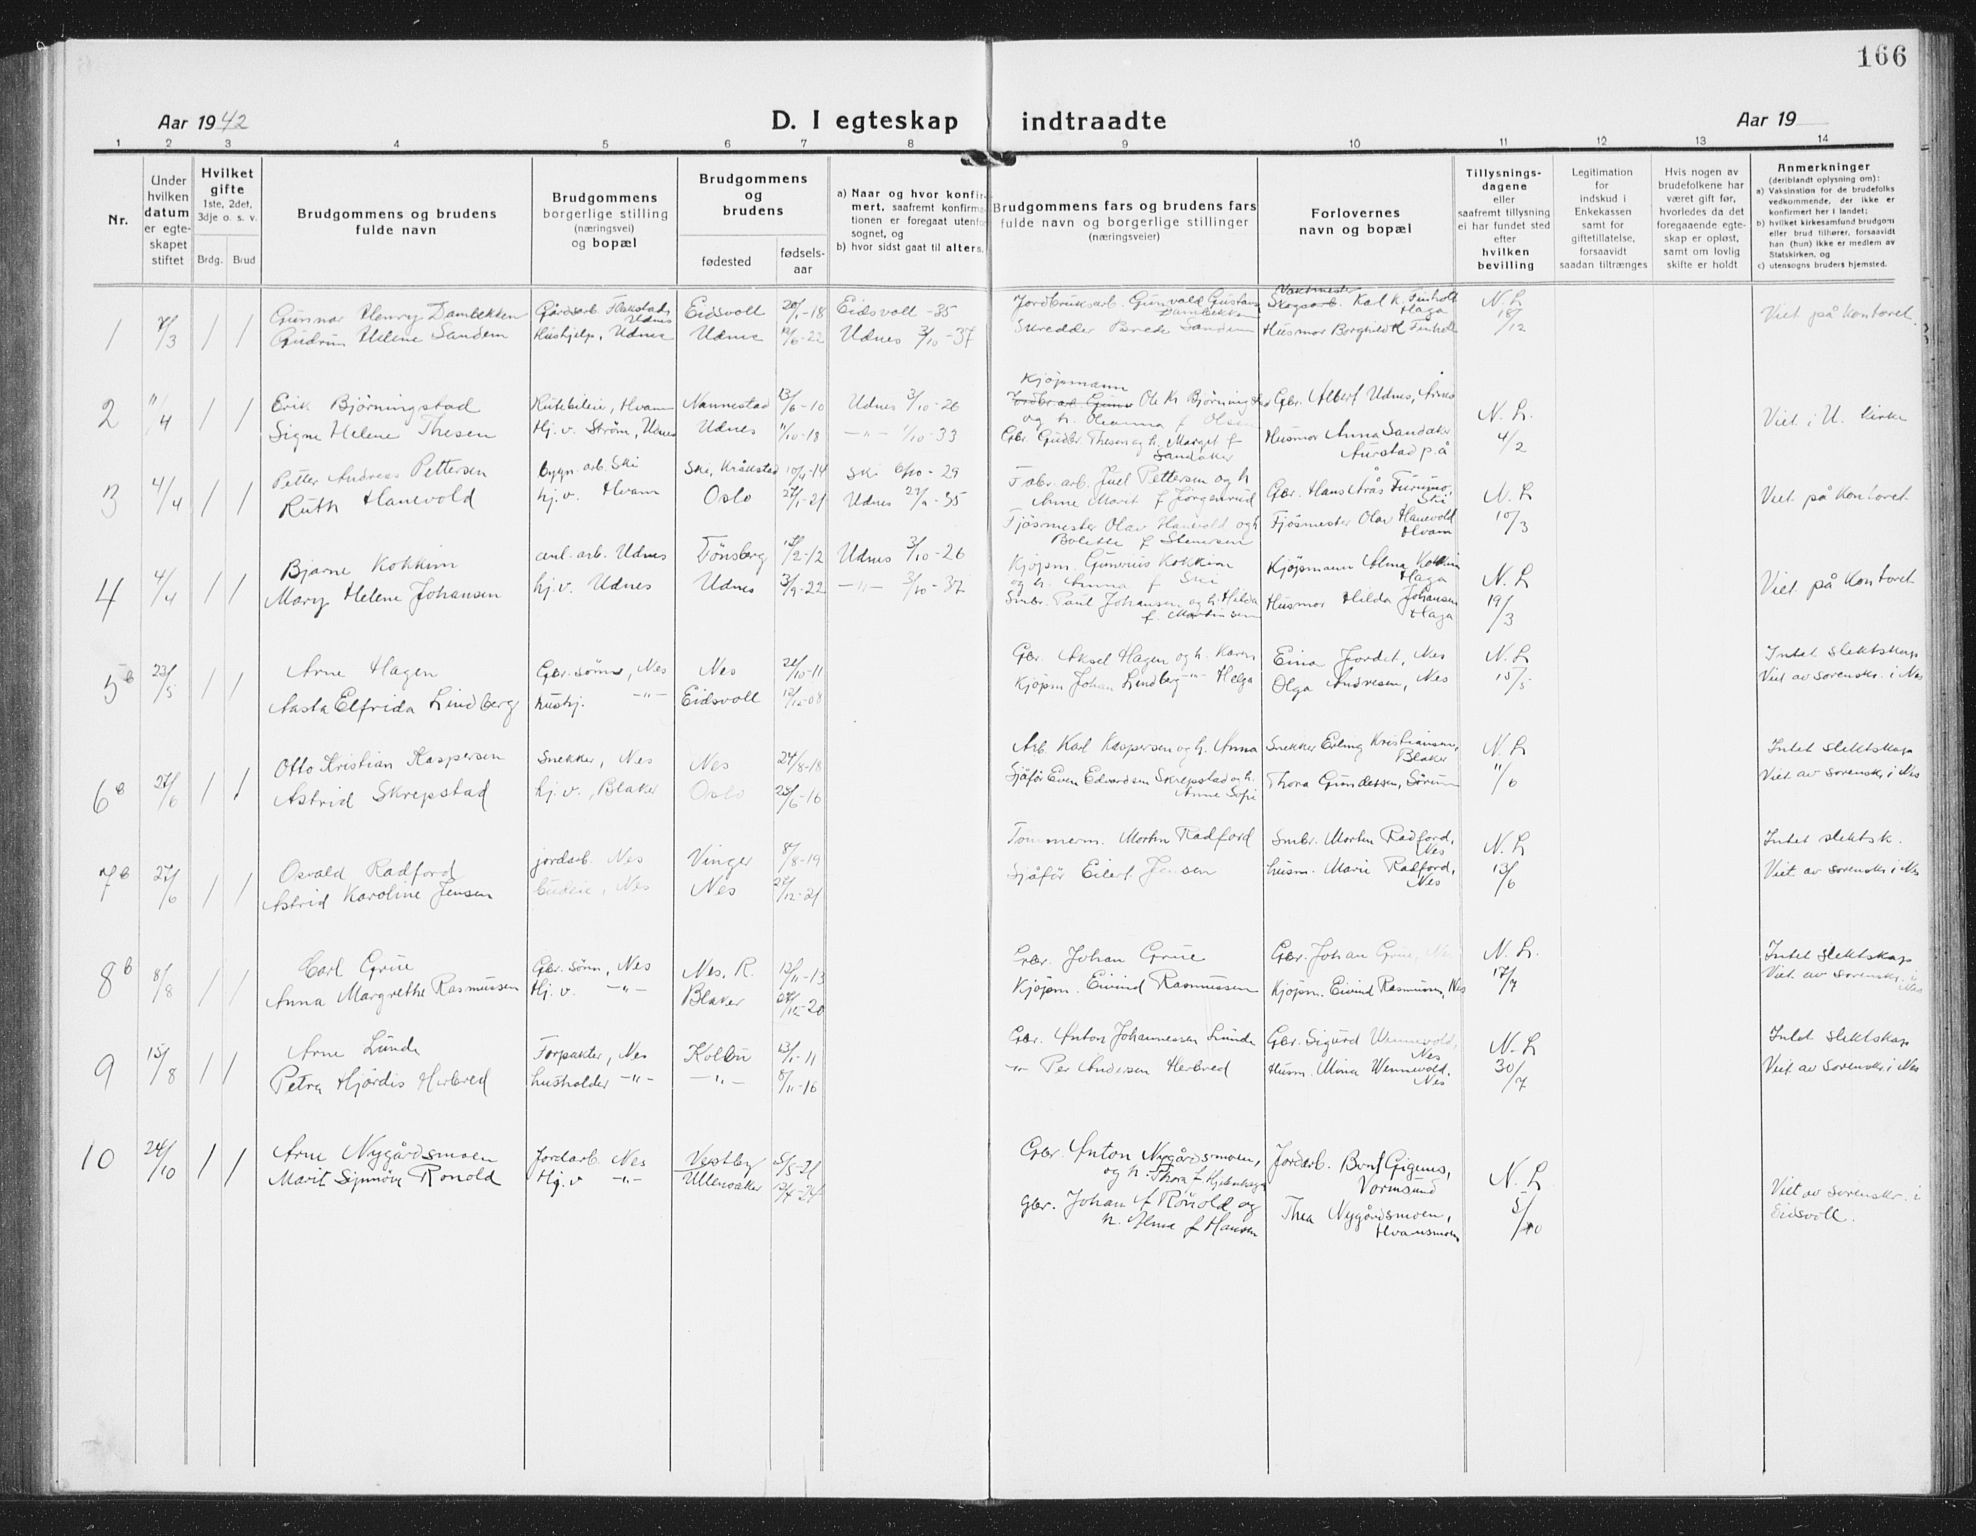 166
Aar 1942
D. I egteskap indtraadte
Aar 19
1 2 3 4 5 6 7 8 9 10 11 12 13 14
Nr.
Under
hvilken
datum
er egte-
skapet
stiftet
Hvilket
gifte
1ste, 2det,
3dje o. s. v.
Brdg. Brud
Brudgommens og brudens
fulde navn
Brudgommens
borgerlige stilling
(næringsvei)
og bopæl
Brudgommens
og
brudens
fødested
fødsels-
aar
a) Naar og hvor konfir-
mert, saafremt konfirma-
tionen er foregaat utenfor
sognet, og
b) hvor sidst gaat til alters.
Brudgommens fars og brudens fars
fulde navn og borgerlige stillinger
(næringsveier)
Forlovernes
navn og bopæl
Tillysnings-
dagene
eller
saafremt tillysning
ei har fundet sted
efter
hvilken
bevilling
Legitimation
for
indskud i
Enkekassen
samt for
giftetillatelse,
forsaavidt
saadan tiltrænges
Hvis nogen av
brudefolkene har
været gift før,
hvorledes da det
foregaaende egte-
skap er opløst,
samt om lovlig
skifte er holdt
Anmerkninger
(deriblandt oplysning om):
a) Vaksination for de brudefolks
vedkommende, der ikke er
konfirmert her i landet;
b) hvilket kirkesamfund brudgom
eller brud tilhører, forsaavidt
han (hun) ikke er medlem av
Statskirken, og
c) utensogns bruders hjemsted.
1 7/3 1 1 Gunnar Henry Dambekken Gårdsarb. Udnes Eidsvoll 20/1-18 Eidsvoll -35 Jordbruksarb. Gunvald Gustav Dambekken Vaktmester Karl K. Finholt Haga N. L. 18/12 Viet på kontoret.
Gudrun Helene Sandem Hushjelp, Udnes Udnes 19/6-22 Udnes 3/10-37 Skredder Brede Sandem Husmor Borghild K Finholt
2 11/4 1 1 Erik Bjørningstad Rutebileier, Hvam Nannestad 13/6-10 Udnes 3/10-26 Kjøpmann Ole K Bjørningstad og h. Oleanna f Olsen Gbr. Albert Udnes, Årnes N. L. 4/2 Viet i U. kirke
Signe Helene Thesen Hj. v. Strøm, Udnes Udnes 11/10-18 -"- 1/10-33 Gbr. Gudbr. Thesen og h. Marget f Sandaker Husmor Anna Sandaker Aurstad p.å
3 4/4 1 1 Petter Andreas Pettersen bygn. arb. Ski Ski, Kråkstad 10/4-14 Ski 6/10-29 Fabr. arb. Juel Pettersen og h Anne Marit f Jørgenrud Gbr. Hans Strås Furumo, Ski N. L 10/3 Viet på kontoret
Ruth Hanevold hj. v. Hvam Oslo 27/1-21 Udnes 29/9-35 Fjøsmester Olav Hanevold og h Bolette f Stenersen Fjøsmester Olav Hanevold Hvam
4 4/4 1 1 Bjarne Kokkim anl. arb. Udnes Tønsberg 18/2-12 Udnes 3/10-26 Kjøpm. Gunerius Kokkim og h. Anna f Ski Kjøpmann Alma Kokkim Haga N. L 19/3 Viet på kontoret
Mary Helene Johansen hj. v. Udnes Udnes 3/9-22 -"- 3/10-37 Smbr. Paul Johansen og h. Hilda f. Martinsen Husmor Hilda Johansen Haga
5b 23/5 1 1 Arne Hagen Gbr. sønn, Nes Nes 21/10-11 Gbr. Aksel Hagen og h. Karen Eina Jordet, Nes N. L 15/5 Intet slektskap
Aasta Elfrida Lindberg hushj. -"- Eidsvoll 12/12-08 Kjøpm Johan Lindberg -"- Helga Olga Andresen, Nes Viet av sorenskr. i Nes
6b 27/6 1 1 Otto Kristian Kaspersen Snekker, Nes Nes 24/8-18 Arb. Karl Kaspersen og h. Anna Snekker Erling Kristiansen, Blaker N. L 11/6 Intet slektskap
Astrid Skrepstad hj. v., Blaker Oslo 25/6-16 Sjåfør Even Edvardsen Skrepstad og h. Anne Sofi Thora Gundersen, Sørum Viet av sorenskr. i Nes
7b 27/6 1 1 Osvald Radford jordarb. Nes Vinger 8/8-19 Tømmerm. Morten Radford Smbr. Morten Radford, Nes N. L 13/6 Intet slektsk.
Astrid Karoline Jensen budeie, Nes Nes 27/12-21 Sjåfør Eilert Jensen husm. Marie Radford, Nes Viet av sorenskr. i Nes
8b 8/8 1 1 Carl Grue Gbr. sønn, Nes Nes, R. 12/11-13 Gbr. Johan Grue Gbr. Johan Grue, Nes N. L. 17/7 Intet slektskap
Anna Margrethe Rasmussen Hj. v. -"- Blaker 27/12-20 Kjøpm. Eivind Rasmussen Kjøpm. Eivind Rasmussen, Nes Viet av sorenskr. i Nes
9 15/8 1 1 Arne Lunde Forpakter, Nes Kolbu 13/1-11 Gbr. Anton Johannessen Lunde Gbr. Sigurd Wennevold, Nes N. L 30/7 Intet slektskap
Petra Hjørdis Herbred husholder -"- -"- 8/11-16 -"- Per Andersen Herbred Husm. Mina Wennevold, Nes Viet av sorenskr. i Nes
10 24/10 1 1 Arne Nygårdsmoen Jordarb. Nes Vestby 5/5-21 Gbr. Anton Nygårdsmoen, og h. Thora f Jordarb. Vormsund N. L. 5/10 Viet av sorenskr. i Eidsvoll.
Marit Synnøve Rønold Hj. v -"- Ullensaker Gbr. Johan A Rønold og h. Alma f Hansen Thea Nygårdsmoen, Hvamsmoen